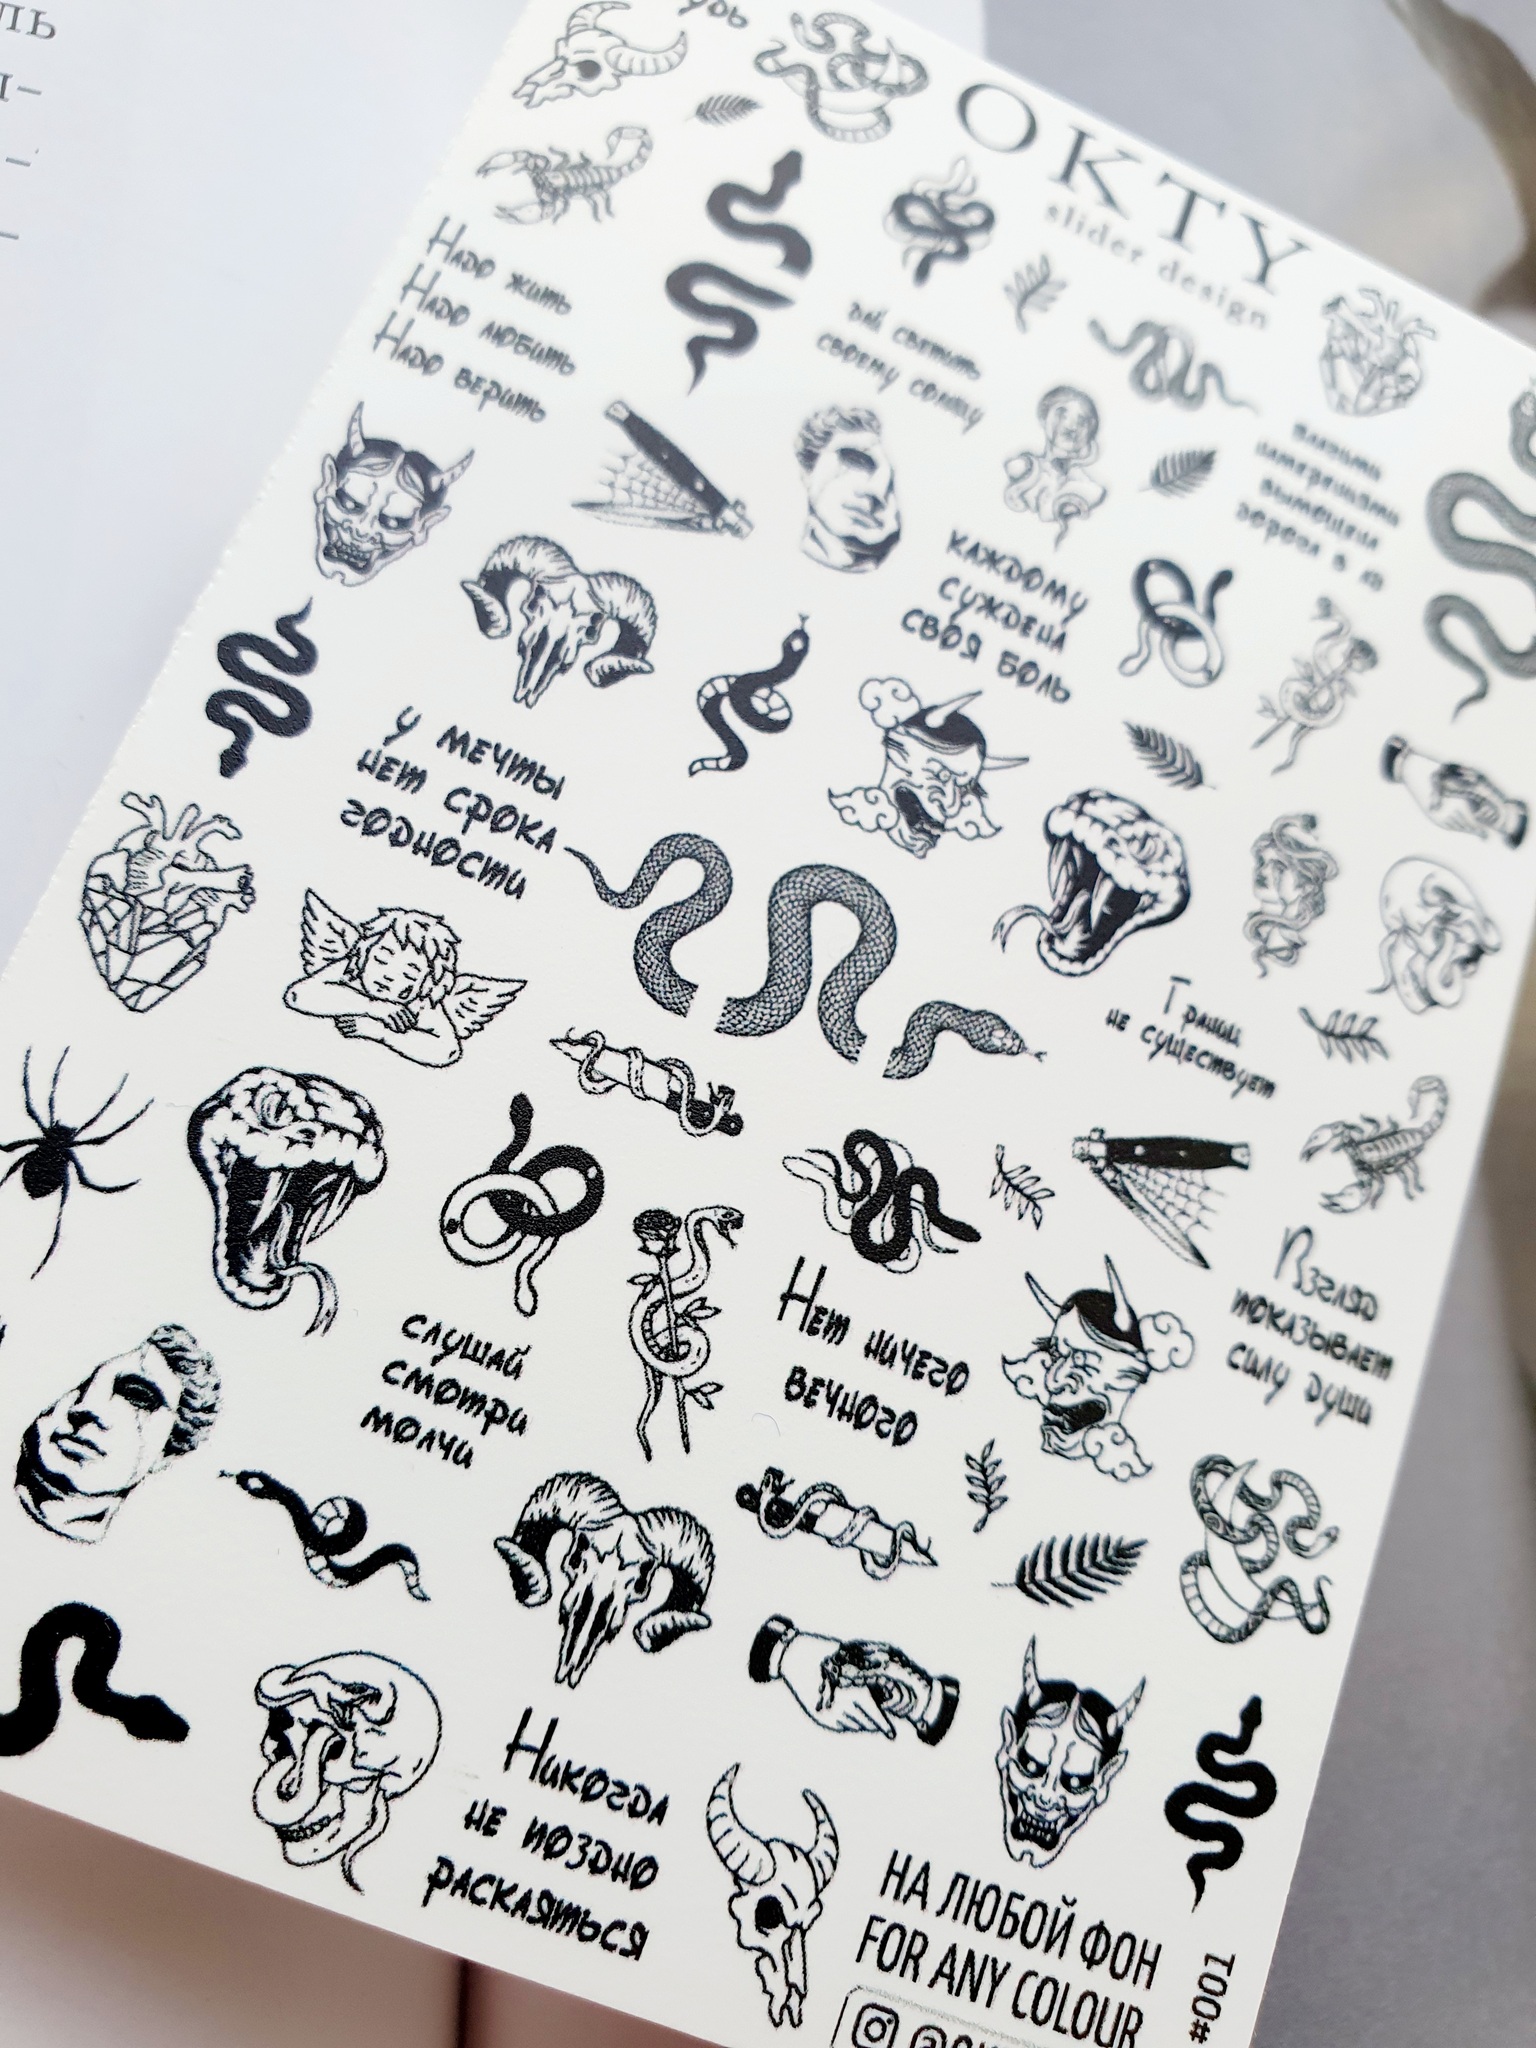 OKTY
slider design
Надо жить
Надо любить
Надо верить
дай светить
своему солнцу
КАЖДОМУ
СУЖДЕНА
СВОЯ БОЛЬ
У МЕЧТЫ
НЕТ СРОКА
ГОДНОСТИ
Грани
не существует
Взгляд
показывает
силу души
СЛУШАЙ
СМОТРИ
МОЛЧИ
Нет ничего
вечного
Никогда
не поздно
раскаяться
НА ЛЮБОЙ ФОН
FOR ANY COLOUR
#001